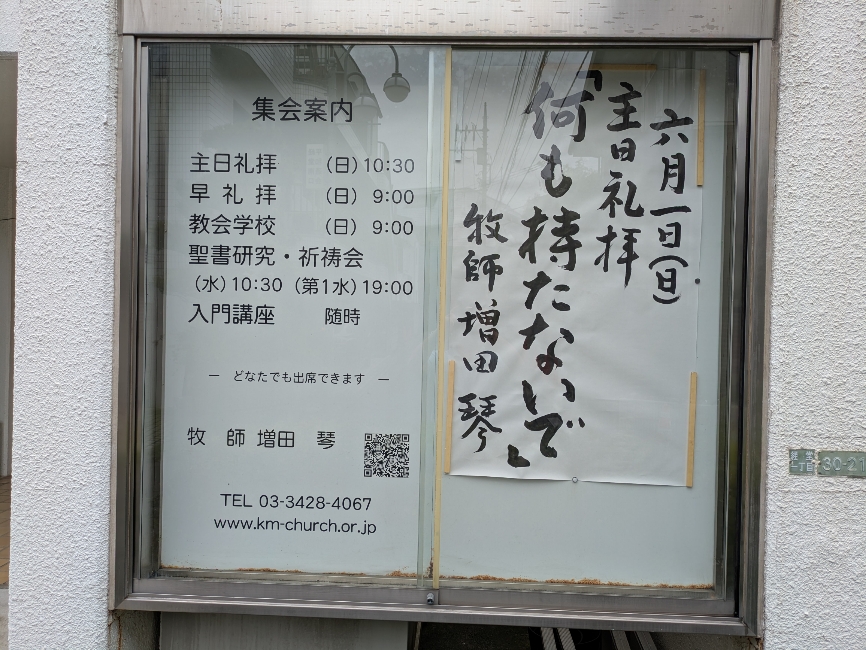 集会案内
主日礼拝 (日) 10:30
早礼拝 (日) 9:00
教会学校 (日) 9:00
聖書研究・祈祷会
(水) 10:30 (第1水) 19:00
入門講座 随時
— どなたでも出席できます —
牧師 増田 琴
TEL 03-3428-4067
www.km-church.or.jp
六月一日(日)
主日礼拝
「何も持たないで」
牧師 増田 琴
経堂
一丁目
30-21